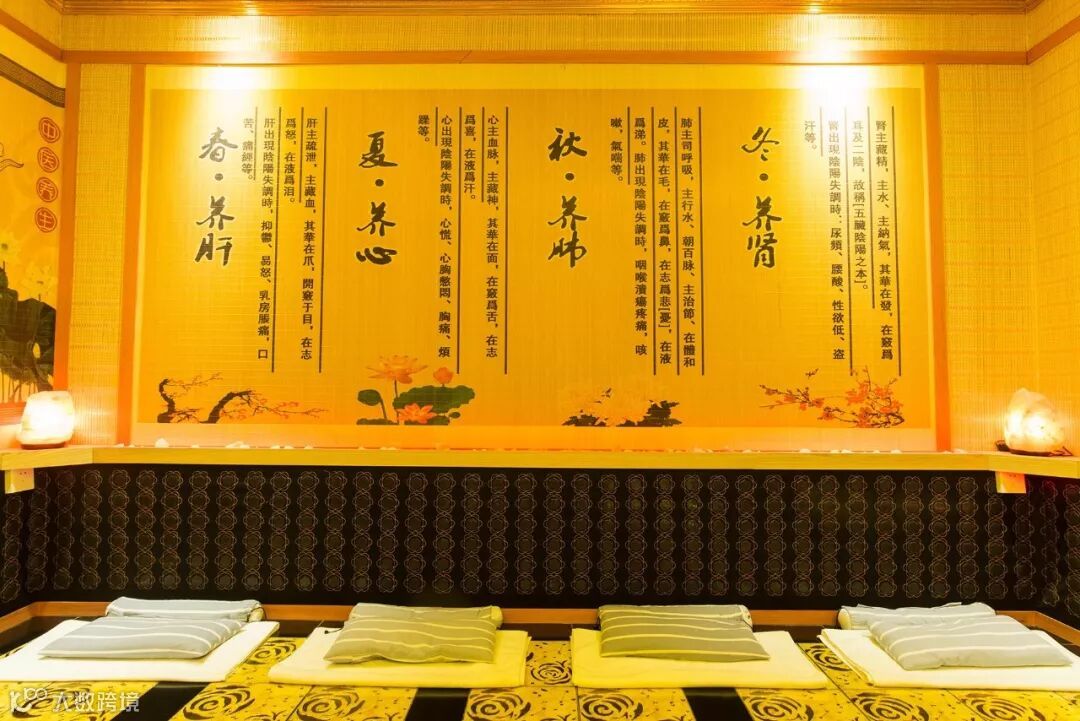 中医养生
春·养肝
肝主疏泄，主藏血，其華在爪，開竅于目，在志
爲怒，在液爲泪。
肝出現陰陽失調時，抑鬱、易怒、乳房脹痛，口
苦、痛經等。
夏·养心
心主血脉，主藏神，其華在面，在竅爲舌，在志
爲喜，在液爲汗。
心出現陰陽失調時，心慌、心胸憋悶、胸痛、煩
躁等。
秋·养肺
肺主司呼吸，主行水、朝百脉、主治節、在體和
皮，其華在毛，在竅爲鼻，在志爲悲[憂]，在液
爲涕。肺出現陰陽失調時，咽喉潰瘍疼痛，咳
嗽，氣喘等。
冬·养肾
腎主藏精，主水、主納氣，其華在發，在竅爲
耳及二陰，故稱[五臟陰陽之本]。
腎出現陰陽失調時：尿頻、腰酸、性欲低、盗
汗等。
大数跨境